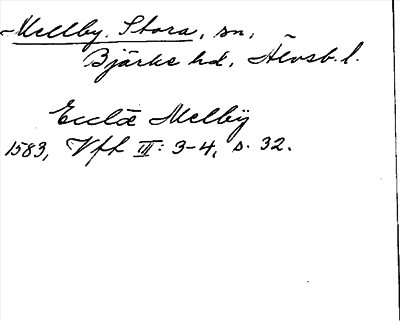 Mellby, Stora, sn,
Bjärke hd, Älvsb. l.
Ecclæ Melby
1583, Vfh III: 3-4, s. 32.